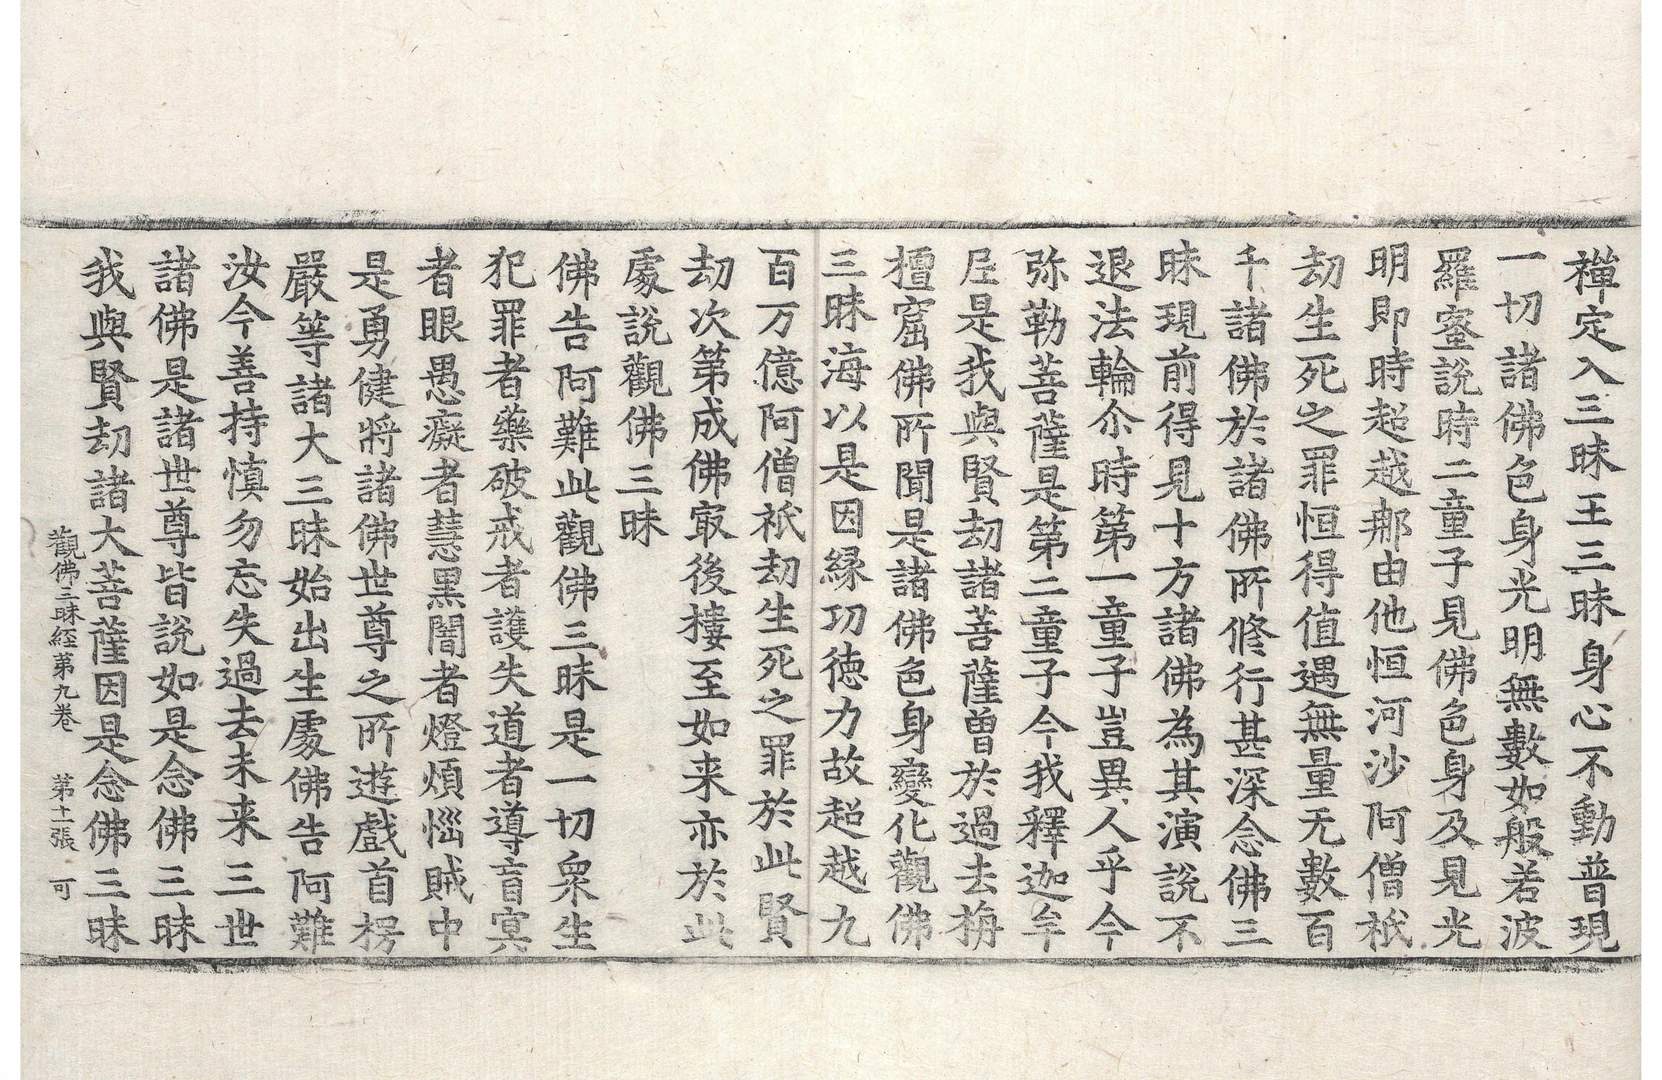 禪定入三昧王三昧身心不動普現
一切諸佛色身光明無數如般若波
羅蜜說時二童子見佛色身及見光
明即時超越那由他恒河沙阿僧祇
劫生死之罪恒得值遇無量无數百
千諸佛於諸佛所修行甚深念佛三
昧現前得見十方諸佛為其演說不
退法輪尒時第一童子豈異人乎今
弥勒菩薩是第二童子今我釋迦牟
尼是我與賢劫諸菩薩曾於過去栴
檀窟佛所聞是諸佛色身變化觀佛
三昧海以是因緣功德力故超越九
百万億阿僧祇劫生死之罪於此賢
劫次第成佛㝡後樓至如来亦於此
處說觀佛三昧
佛告阿難此觀佛三昧是一切衆生
犯罪者藥破戒者護失道者導盲冥
者眼愚癡者慧黑闇者燈煩惱賊中
是勇健將諸佛世尊之所遊戲首楞
嚴等諸大三昧始出生處佛告阿難
汝今善持慎勿忘失過去未来三世
諸佛是諸世尊皆說如是念佛三昧
我與賢劫諸大菩薩因是念佛三昧
觀佛三昧経第九卷 第十一張 可